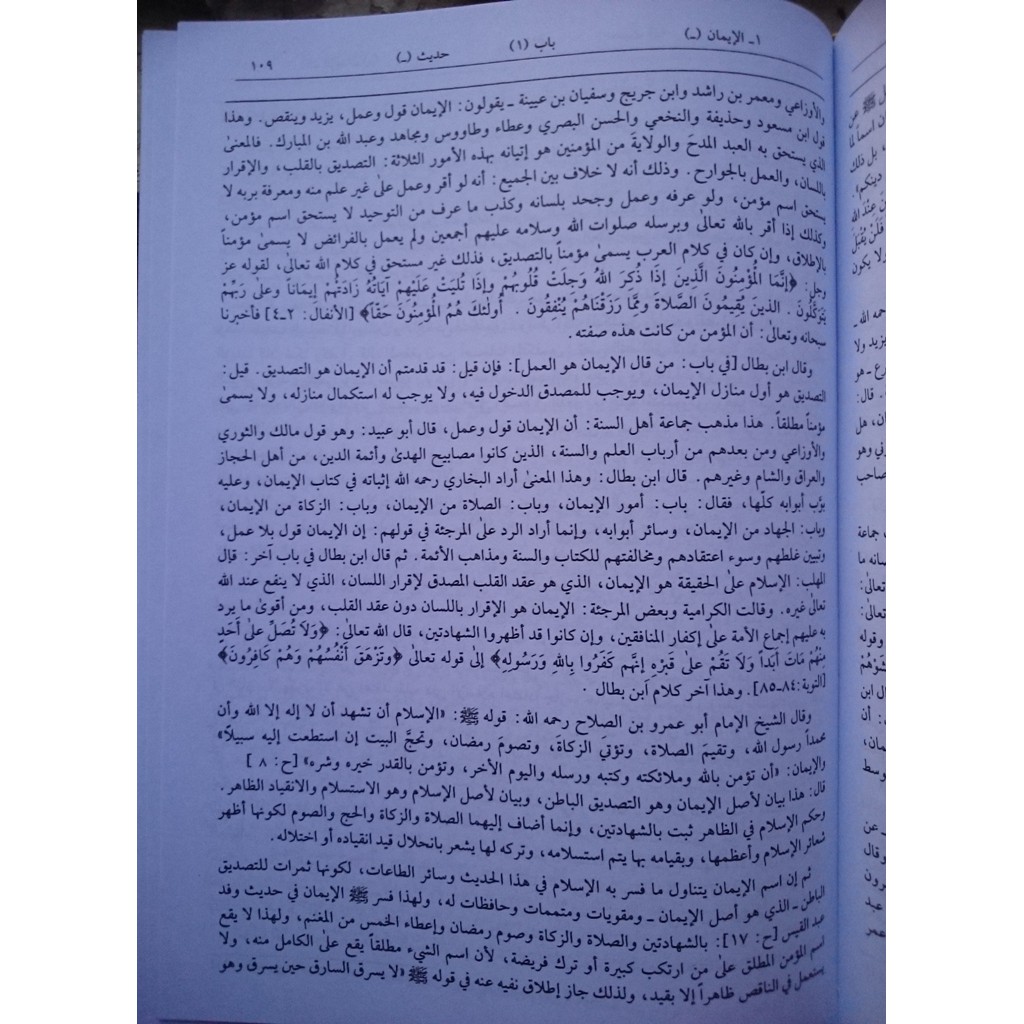 ١ـ الإيمان (ـ) باب (١) حديث (ـ) ١٠٩
والأوزاعي ومعمر بن راشد وابن جريج وسفيان بن عيينة ـ يقولون: الإيمان قول وعمل، يزيد وينقص. وهذا
قول ابن مسعود وحذيفة والنخعي والحسن البصري وعطاء وطاووس ومجاهد وعبد الله بن المبارك. فالمعنىٰ
الذي يستحق به العبد المدحَ والولايةَ من المؤمنين هو إتيانه بهذه الأمور الثلاثة: التصديق بالقلب، والإقرار
باللسان، والعمل بالجوارح. وذلك أنه لا خلاف بين الجميع: أنه لو أقر وعمل علىٰ غير علم منه ومعرفة بربه لا
يستحق اسم مؤمن، ولو عرفه وعمل وجحد بلسانه وكذب ما عرف من التوحيد لا يستحق اسم مؤمن،
وكذلك إذا أقر بالله تعالىٰ وبرسله صلوات الله وسلامه عليهم أجمعين ولم يعمل بالفرائض لا يسمىٰ مؤمناً
بالإطلاق، وإن كان في كلام العرب يسمىٰ مؤمناً بالتصديق، فذلك غير مستحق في كلام الله تعالىٰ، لقوله عز
وجل: ﴿إنَّمَا المُؤْمِنُونَ الَّذِينَ إذَا ذُكِرَ اللهُ وَجِلَتْ قُلُوبُهُمْ وإذَا تُلِيَتْ عَلَيْهِمْ آيَاتُهُ زَادَتْهُمْ إيمَاناً وعلىٰ رَبِّهِمْ
يَتَوَكَّلُونَ . الذينَ يُقِيمُونَ الصَّلاةَ وَمِمَّا رَزَقْنَاهُمْ يُنْفِقُونَ . أُولٰئكَ هُمُ المُؤْمِنُونَ حَقّاً﴾ [الأنفال: ٢ـ٤] فأخبرنا
سبحانه وتعالىٰ: أن المؤمن من كانت هذه صفته.
وقال ابن بطال [في باب: من قال الإيمان هو العمل]: فإن قيل: قد قدمتم أن الإيمان هو التصديق. قيل:
التصديق هو أول منازل الإيمان، ويوجب للمصدق الدخول فيه، ولا يوجب له استكمال منازله، ولا يسمىٰ
مؤمناً مطلقاً. هذا مذهب جماعة أهل السنة: أن الإيمان قول وعمل، قال أبو عبيد: وهو قول مالك والثوري
والأوزاعي ومن بعدهم من أرباب العلم والسنة، الذين كانوا مصابيح الهدىٰ وأئمة الدين، من أهل الحجاز
والعراق والشام وغيرهم. قال ابن بطال: وهذا المعنىٰ أراد البخاري رحمه الله إثباته في كتاب الإيمان، وعليه
بوَّب أبوابه كلّها، فقال: باب: أمور الإيمان، وباب: الصلاة من الإيمان، وباب: الزكاة من الإيمان،
وباب: الجهاد من الإيمان، وسائر أبوابه، وإنما أراد الرد علىٰ المرجئة في قولهم: إن الإيمان قول بلا عمل،
وتبيين غلطهم وسوء اعتقادهم ومخالفتهم للكتاب والسنة ومذاهب الأئمة. ثم قال ابن بطال في باب آخر: قال
المهلب: الإسلام علىٰ الحقيقة هو الإيمان، الذي هو عقد القلب المصدق لإقرار اللسان، الذي لا ينفع عند الله
تعالىٰ غيره. وقالت الكرامية وبعض المرجئة: الإيمان هو الإقرار باللسان دون عقد القلب، ومن أقوىٰ ما يرد
به عليهم إجماع الأمة علىٰ إكفار المنافقين، وإن كانوا قد أظهروا الشهادتين، قال الله تعالىٰ: ﴿وَلَا تُصَلِّ علىٰ أَحَدٍ
مِنْهُمْ مَاتَ أَبَداً وَلَا تَقُمْ علىٰ قَبْرِهِ إنَّهم كَفَرُوا باللهِ وَرَسُولِهِ﴾ إلىٰ قوله تعالىٰ ﴿وتَزْهَقَ أَنْفُسُهُمْ وَهُمْ كَافِرُونَ﴾
[التوبة:٨٤ـ٨٥]. وهذا آخر كلام ابن بطال .
وقال الشيخ الإمام أبو عمرو بن الصلاح رحمه الله: قوله ﷺ: «الإسلام أن تشهد أن لا إله إلا الله وأن
محمداً رسول الله، وتقيمَ الصلاة، وتؤتيَ الزكاةَ، وتصومَ رمضان، وتحجَّ البيت إن استطعت إليه سبيلاً»
والإيمان: «أن تؤمن بالله وملائكته وكتبه ورسله واليوم الآخر، وتؤمن بالقدر خيره وشره» [ح: ٨ ]
قال: هذا بيان لأصل الإيمان وهو التصديق الباطن، وبيان لأصل الإسلام وهو الاستسلام والانقياد الظاهر.
وحكم الإسلام في الظاهر ثبت بالشهادتين، وإنما أضاف إليهما الصلاة والزكاة والحج والصوم لكونها أظهر
شعائر الإسلام وأعظمها، وبقيامه بها يتم استسلامه، وتركه لها يشعر بانحلال قيد انقياده أو اختلاله.
ثم إن اسم الإيمان يتناول ما فسر به الإسلام في هذا الحديث وسائر الطاعات، لكونها ثمرات للتصديق
الباطن ـ الذي هو أصل الإيمان ـ ومقويات ومتممات وحافظات له، ولهذا فسر ﷺ الإيمان في حديث وفد
عبد القيس [ح: ١٧]: بالشهادتين والصلاة والزكاة وصوم رمضان وإعطاء الخمس من المغنم، ولهذا لا يقع
اسم المؤمن المطلق علىٰ من ارتكب كبيرة أو ترك فريضة، لأن اسم الشيء مطلقاً يقع علىٰ الكامل منه، ولا
يستعمل في الناقص ظاهراً إلا بقيد، ولذلك جاز إطلاق نفيه عنه في قوله ﷺ «لا يسرق السارق حين يسرق وهو